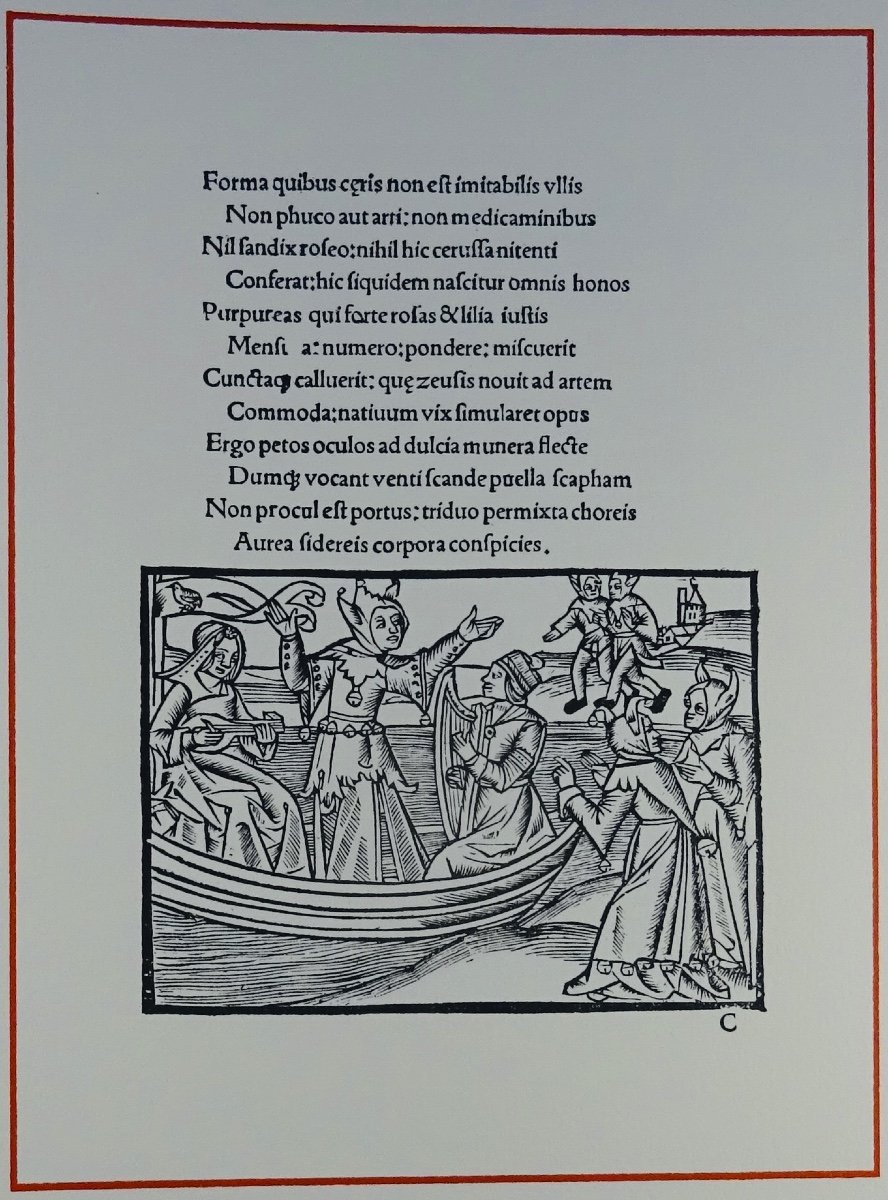 Forma quibus cęris non eſt imitabilis vllis
Non phuco aut arti: non medicaminibus
Nil ſandix roſeo: nihil hic ceruſſa nitenti
Conferat: hic ſiquidem naſcitur omnis honos
Purpureas qui forte roſas & lilia iuſtis
a: numero: pondere: miſcuerit
Cunctaqꝫ calluerit: quę zeuſis nouit ad artem
Commoda: natiuum vix ſimularet opus
Ergo petos oculos ad dulcia munera flecte
Dumqꝫ vocant venti ſcande puella ſcapham
Non procul eſt portus: triduo permixta choreis
Aurea ſidereis corpora conſpicies.
C